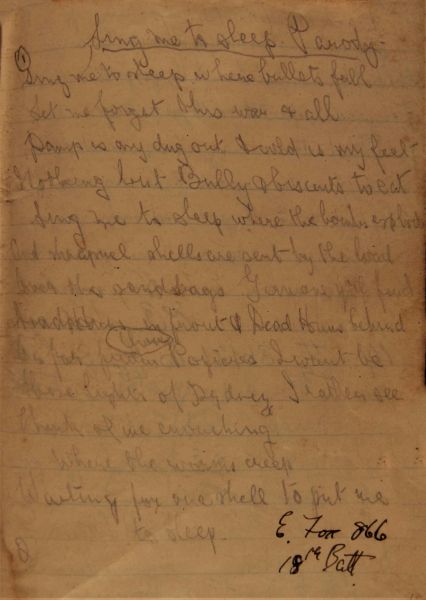 Sing me to sleep. Parody.
(1)
Sing me to sleep where bullets fall
Let me forget this war & all
Damp is my dug out & cold is my feet
Nothing but Bully & biscuits to eat
Sing me to sleep where the bombs explode
And shrapnel shells are sent by the load
Over the sandbags you'll find
in front & Dead Huns behind
far from Popieres I want to be
Where lights of Sydney I rather see
Think of me crouching
Where the worms creep
Waiting for one shell to put me
to sleep.
E. Fox 866
18th Batt